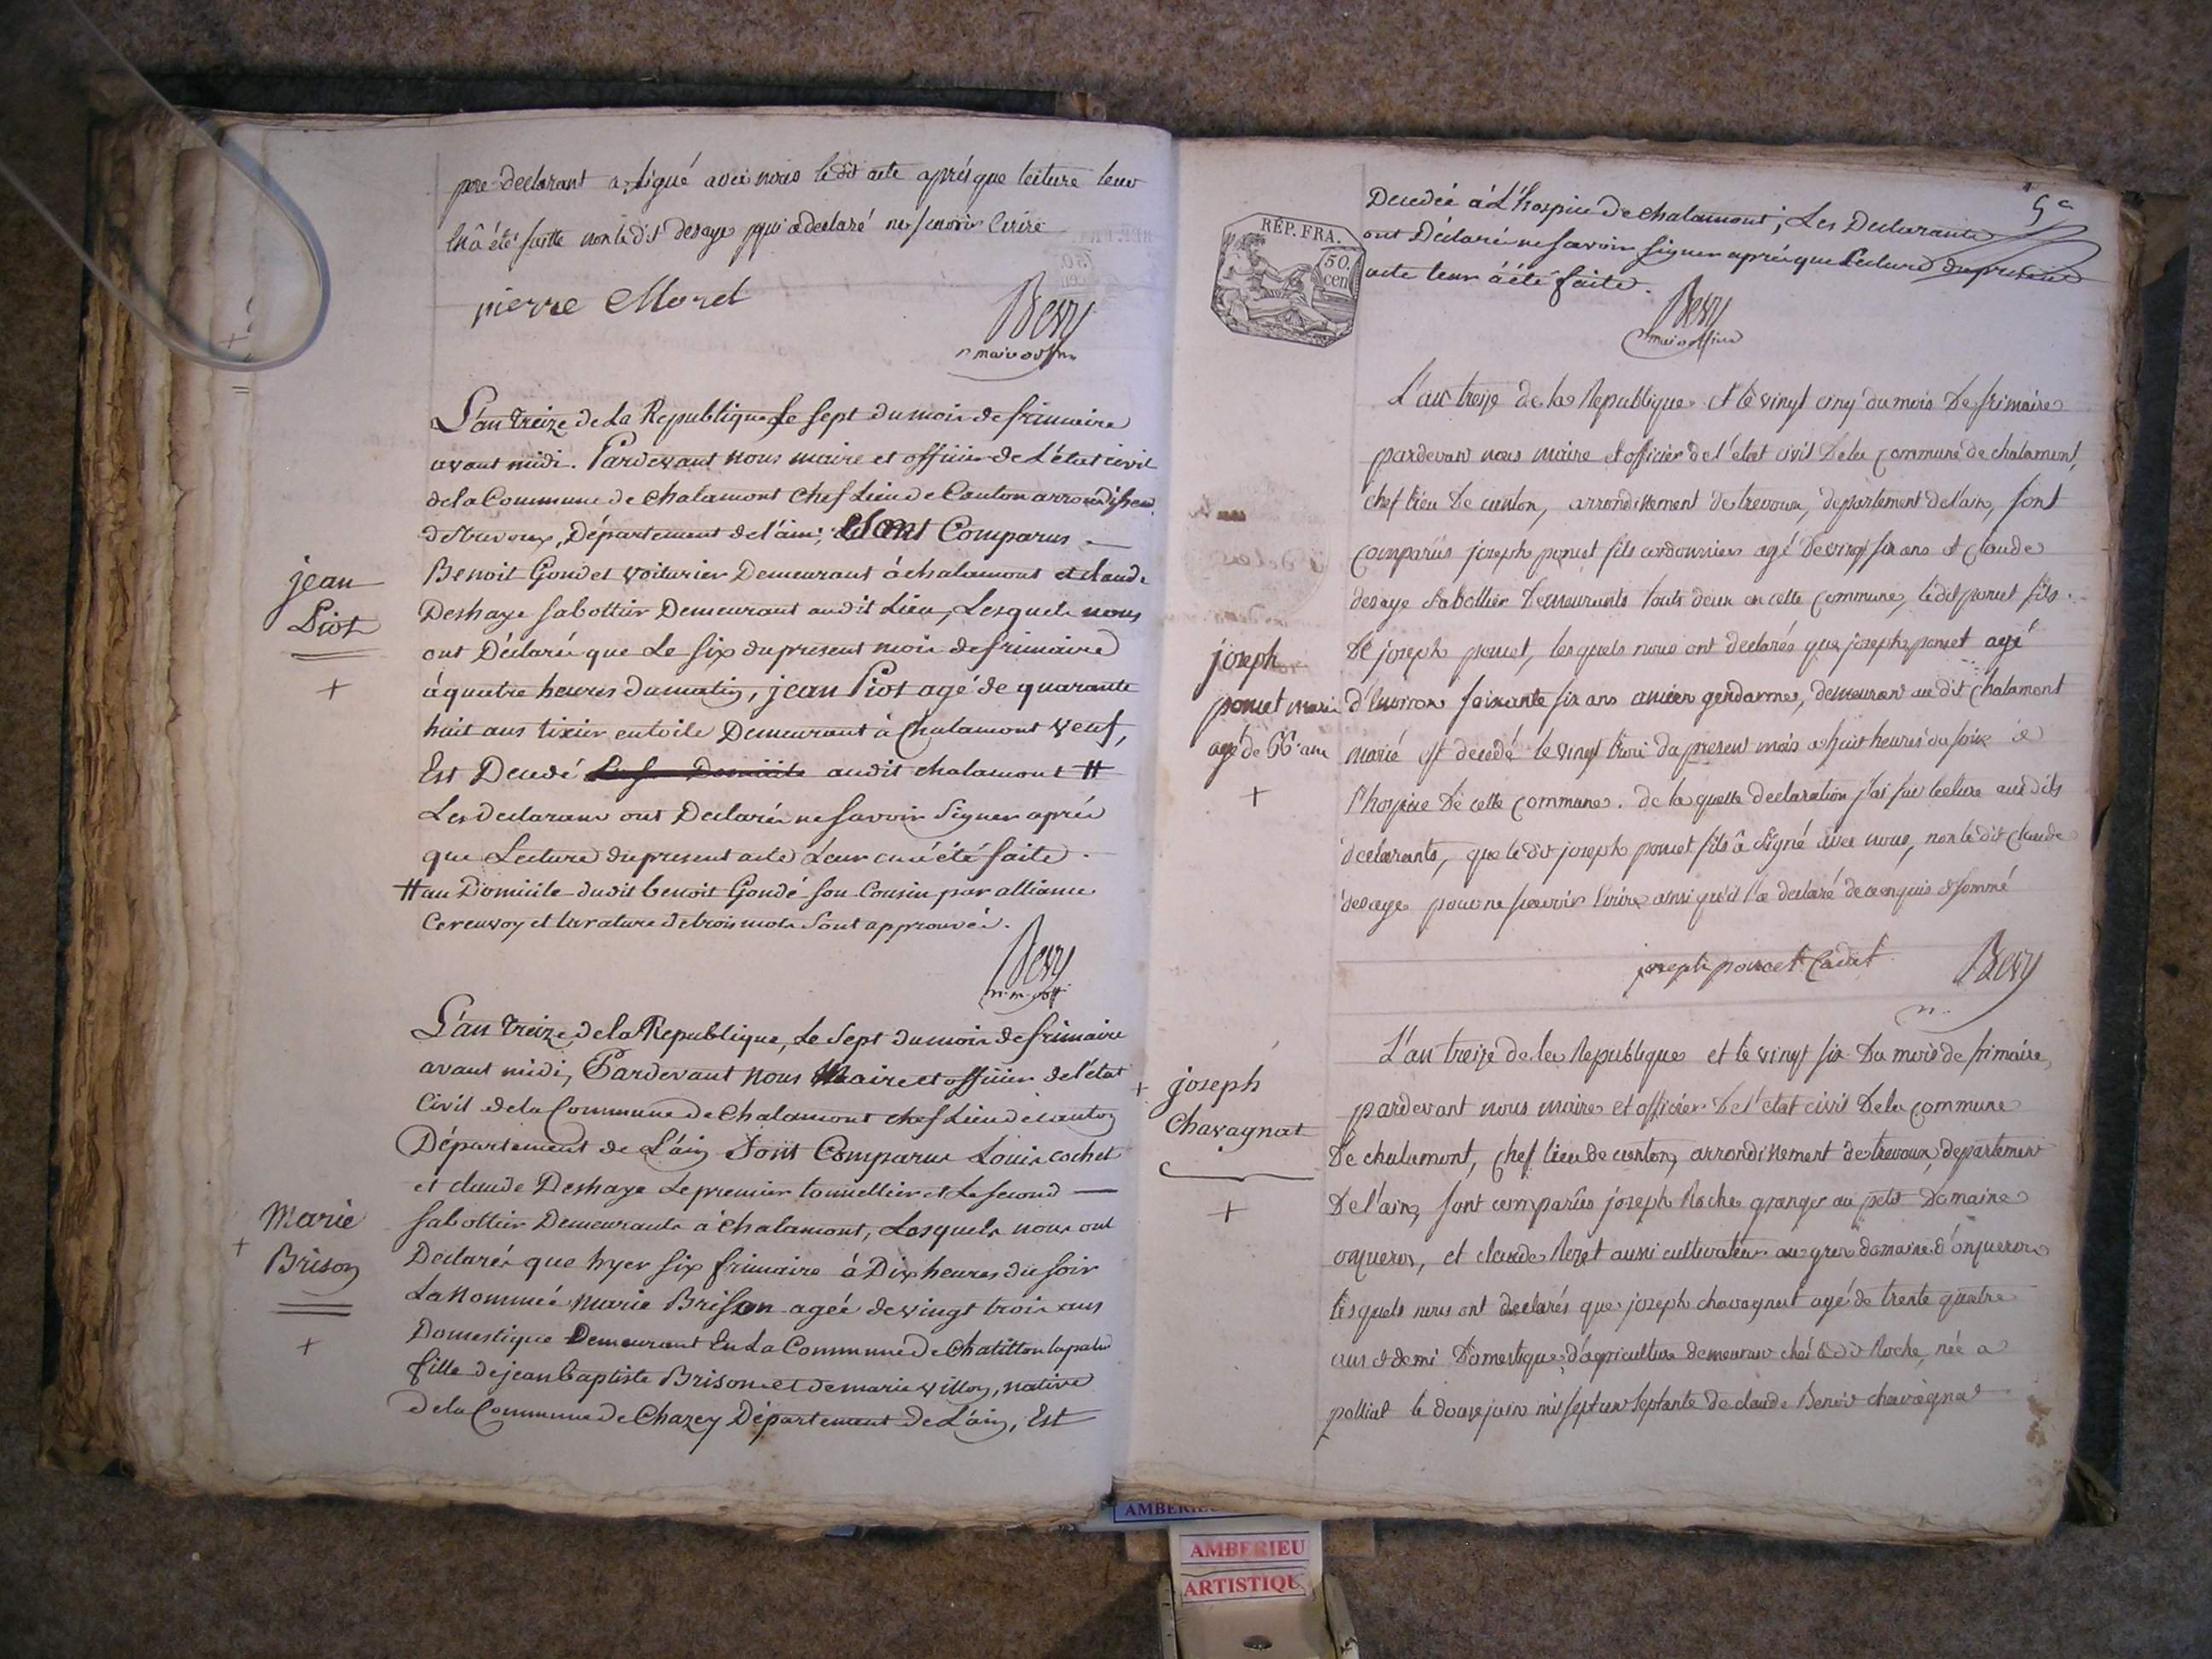 pere declarant a signé avec nous le dit acte aprés que lecture leur
en â été faitte non le dit desaye qui a declaré ne savoir ecrire
pierre Morel
Bevy
maire et offier
L'an treize de la Republique le sept du mois de frimaire
avant midi. Pardevant nous maire et officier de L'état civil
de la Commune de Chalamont Chef Lieu de Canton arrondissem.
de trevoux, Département de l'ain; Sont Comparus
Benoit Gondet voiturier Demeurant à chalamont et claude
Deshaye sabottier Demeurant audit Lieu, Lesquels nous
ont Déclaré que Le six du present mois de frimaire
à quatre heures du matin, jean Piot agé de quarante
huit ans tixier en toile Demeurant à Chalamont Veuf,
Est Decedé audit chalamont #
Les declarans ont Declaré ne savoir Signer aprés
que Lecture du present acte Leur en a été faite.
# au Domicile dudit benoit Gondé son Cousin par alliance
Ce renvoy et la rature de trois mots sont approuvés.
jean
Piot
+
Bevy
L'an treize de la Republique, Le Sept du mois de frimaire
avant midi, Pardevant nous Maire et officier de l'état
Civil de la Commune de Chalamont chef Lieu de canton
Département de L'ain Sont Comparus Louis cochet
et claude Deshaye Le premier tonnellier et Le second
sabottier Demeurants à Chalamont, Lesquels nous ont
Declarés que hyer six frimaire à Dix heures du soir
La nommée Marie Brison agée de vingt trois ans
Domestique Demeurant En La Commune De Chatillon la palu
fille de jean baptiste Brison et de marie villon, native
de la Commune de Chazey Département de L'ain, Est
Marie
+
Brison
+
5e
RÉP. FRA.
50.
cen
Decedée à L'hospice de chalamont; Les Declarants
ont Déclaré ne savoir signer aprés que Lecture du present
acte leur à été faite.
Bevy
maire offier
L'an treize de la Republique et le vingt cinq du mois De frimaire
pardevant nous maire et officier de l'état civil De la commune de chalamont,
chef lieu De canton, arrondissement de trevoux, departement de l'ain, sont
comparûs joseph poncet fils cordonnier agé De vingt six ans et claude
desaye sabottier Demeurants touts deux en cette commune, le dit poncet fils
De joseph poncet, lesquels nous ont declarés que joseph poncet agé
d'environ soixante six ans ancien gendarme, demeurant au dit chalamont
marié est decedé le vingt trois du present mois a huit heures du soir à
l'hospice De cette commune. de la quelle declaration j'ai fait lecture aux dits
declarants, que le dit joseph poncet fils â signé avec nous, non le dit claude
desaye pour ne sçavoir écrire ainsi qu'il l'a declaré de ce enquis et sommé
joseph
poncet marié
agé de 66 ans
+
joseph poncet Cadet
Bevy
m.
L'an treize de la Republique et le vingt six Du mois de frimaire,
pardevant nous maire et officier De l'etat civil De la commune
De chalamont, chef lieu de canton, arrondissement de trevoux, departement
De l'ain, sont comparûs joseph Roche granger au petit Domaine
onqueron, et claude Rozet aussi cultivateur au gros domaine d'onqueron
lesquels nous ont declarés que joseph chavagnat agé de trente quatre
ans et demi Domestique d'agriculture demeurant chéz le dit Roche, née a
polliat le douze juin mil sept cent septante de claude Benoit chavagnat
+ joseph
Chavagnat
+
AMBERIEU
AMBERIEU
ARTISTIQU